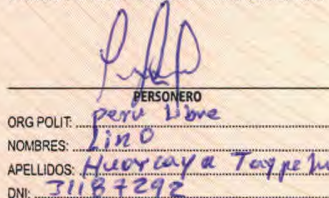 PERSONERO
ORG POLIT: peru libre
NOMBRES: Lino
APELLIDOS: Huarcaya
DNI: 31187292